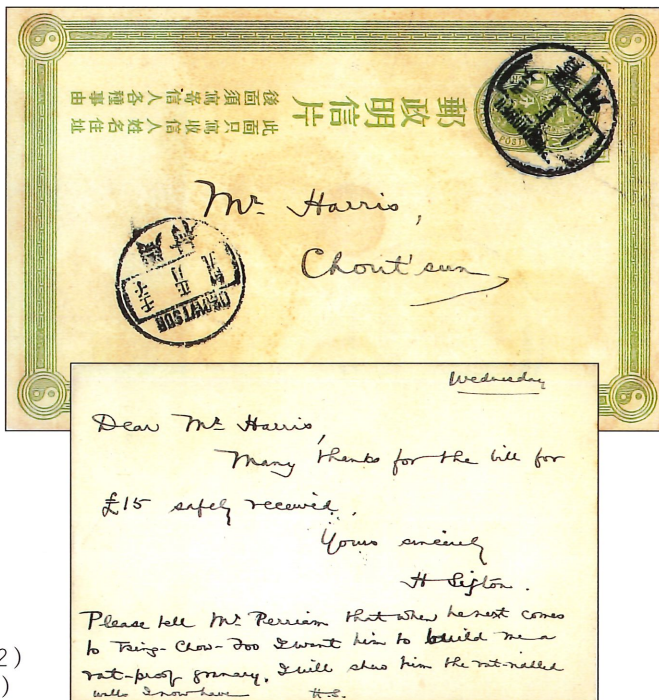 郵政明信片
此面只寫收信人姓名住址
後面須寫寄信人各種事由
Mr. Harris,
Chout'sun
CHOWTSUN
壬子
正月
Wednesday
Dear Mr. Harris,
Many thanks for the bill for
£15 safely received.
Yours sincerely
H Sifton.
Please tell Mr. Perriam that when he next comes
to Tsing-Chow-Foo I want him to build me a
rat-proof granary. I will show him the rat-riddled
walls I now have H.S.
2)
)